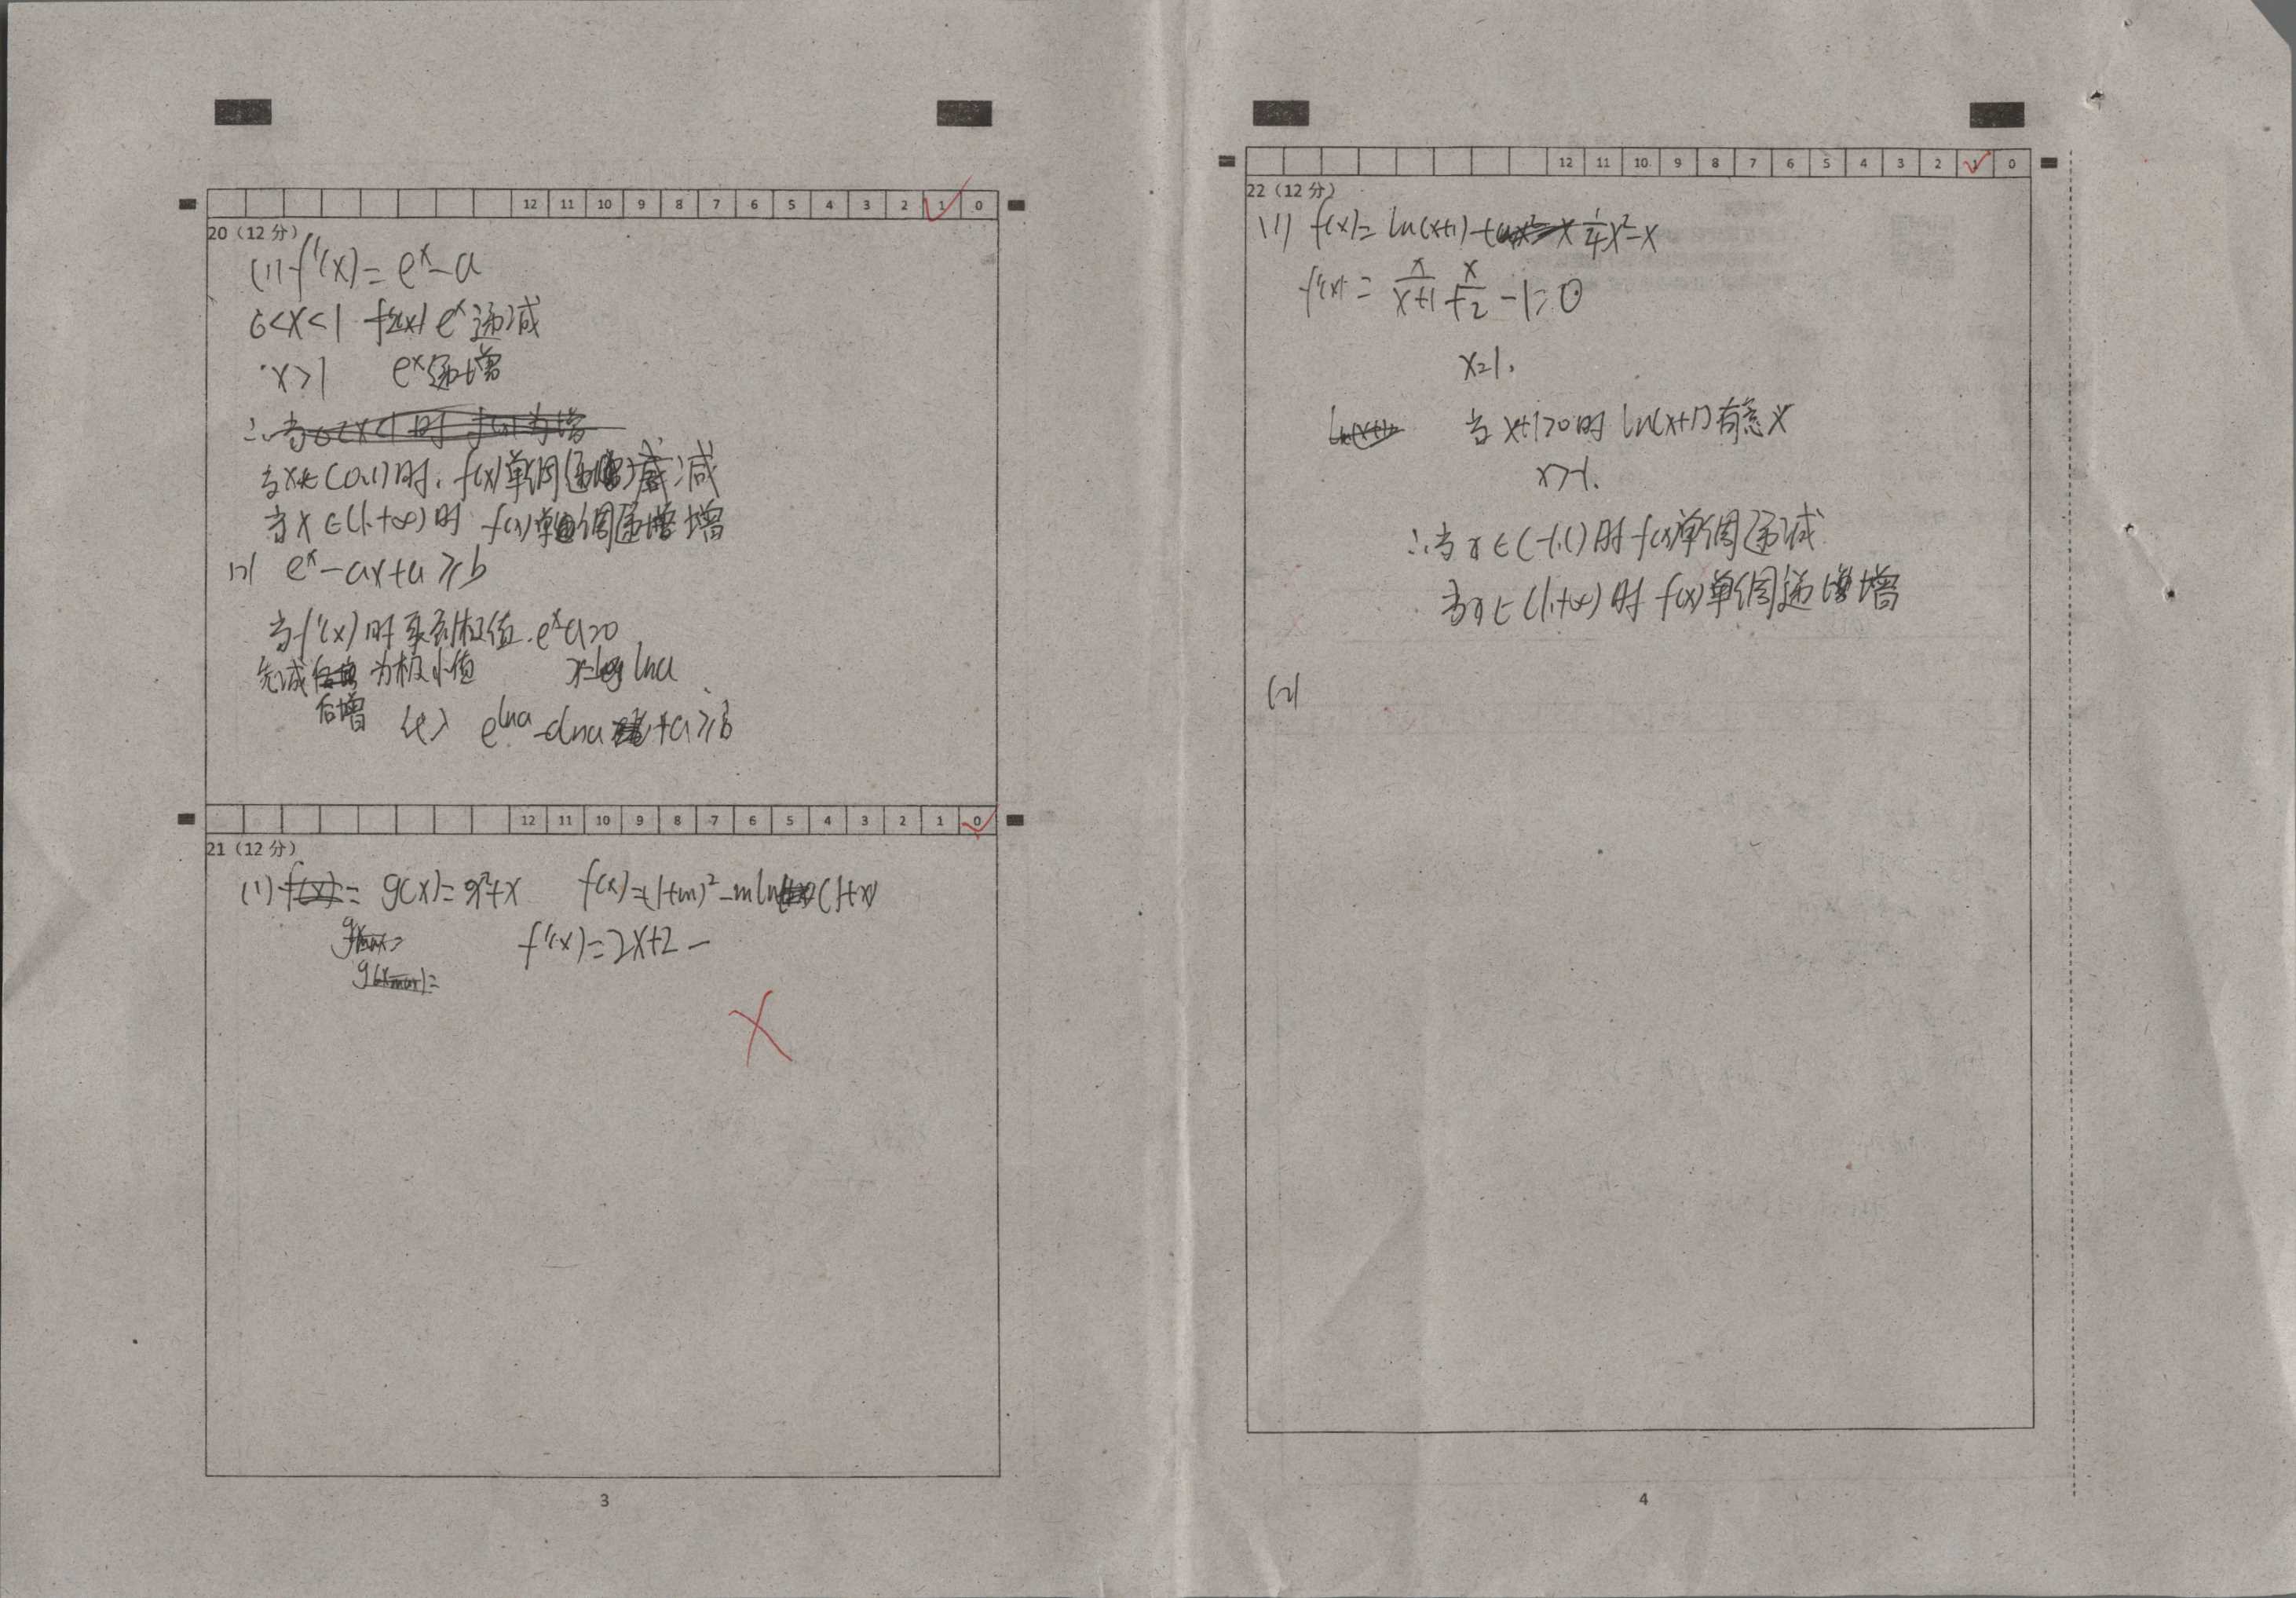 12 11 10 9 8 7 6 5 4 3 2 1 0
20（12 分）
(1) f'(x)= eˣ-a
0<x<1 eˣ递减
x>1 eˣ递增
∴
当x∈(0,1)时,f(x)单调递减
当x∈(1,+∞)时 f(x)单调递增
(2) eˣ-ax+a≥b
当f'(x)时取到极值.eˣ-a=0
先减 为极小值 x=lna
后增 e^lna -alna +a≥b
12 11 10 9 8 7 6 5 4 3 2 1 0
21（12 分）
(1) g(x)=x²+x f(x)=(1+m)²-mln(1+x)
f'(x)=2x+2-
3
12 11 10 9 8 7 6 5 4 3 2 1 0
22（12 分）
(1) f(x)= ln(x+1)+¼x²-x
f'(x)= x/(x+1) + x/2 -1=0
x=1.
当x+1>0时 ln(x+1)有意义
x>-1.
∴当x∈(-1,1)时f(x)单调递减
当x∈(1,+∞)时 f(x)单调递增
(2)
4